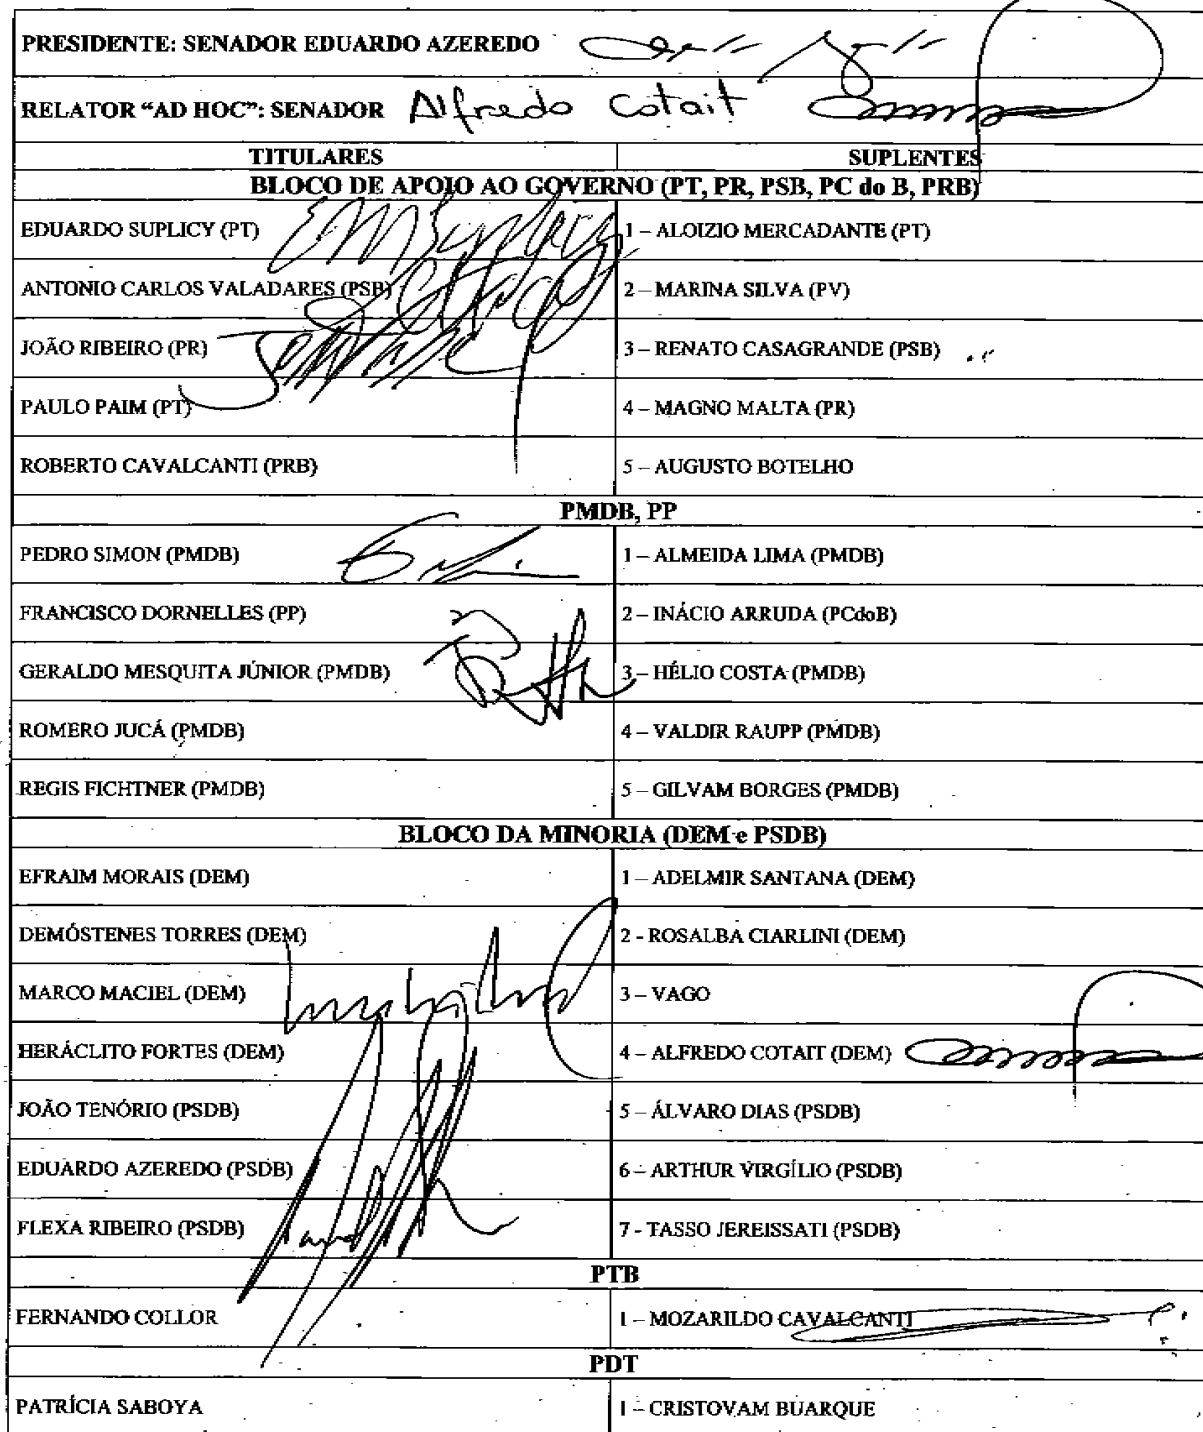 PRESIDENTE: SENADOR EDUARDO AZEREDO
RELATOR "AD HOC": SENADOR Alfredo Cotait
TITULARES SUPLENTES
BLOCO DE APOIO AO GOVERNO (PT, PR, PSB, PC do B, PRB)
EDUARDO SUPLICY (PT) 1 – ALOIZIO MERCADANTE (PT)
ANTONIO CARLOS VALADARES (PSB) 2 – MARINA SILVA (PV)
JOÃO RIBEIRO (PR) 3 – RENATO CASAGRANDE (PSB)
PAULO PAIM (PT) 4 – MAGNO MALTA (PR)
ROBERTO CAVALCANTI (PRB) 5 – AUGUSTO BOTELHO
PMDB, PP
PEDRO SIMON (PMDB) 1 – ALMEIDA LIMA (PMDB)
FRANCISCO DORNELLES (PP) 2 – INÁCIO ARRUDA (PCdoB)
GERALDO MESQUITA JÚNIOR (PMDB) 3 – HÉLIO COSTA (PMDB)
ROMERO JUCÁ (PMDB) 4 – VALDIR RAUPP (PMDB)
REGIS FICHTNER (PMDB) 5 – GILVAM BORGES (PMDB)
BLOCO DA MINORIA (DEM e PSDB)
EFRAIM MORAIS (DEM) 1 – ADELMIR SANTANA (DEM)
DEMÓSTENES TORRES (DEM) 2 - ROSALBA CIARLINI (DEM)
MARCO MACIEL (DEM) 3 – VAGO
HERÁCLITO FORTES (DEM) 4 – ALFREDO COTAIT (DEM)
JOÃO TENÓRIO (PSDB) 5 – ÁLVARO DIAS (PSDB)
EDUARDO AZEREDO (PSDB) 6 – ARTHUR VIRGÍLIO (PSDB)
FLEXA RIBEIRO (PSDB) 7 - TASSO JEREISSATI (PSDB)
PTB
FERNANDO COLLOR 1 – MOZARILDO CAVALCANTI
PDT
PATRÍCIA SABOYA 1 – CRISTOVAM BUARQUE